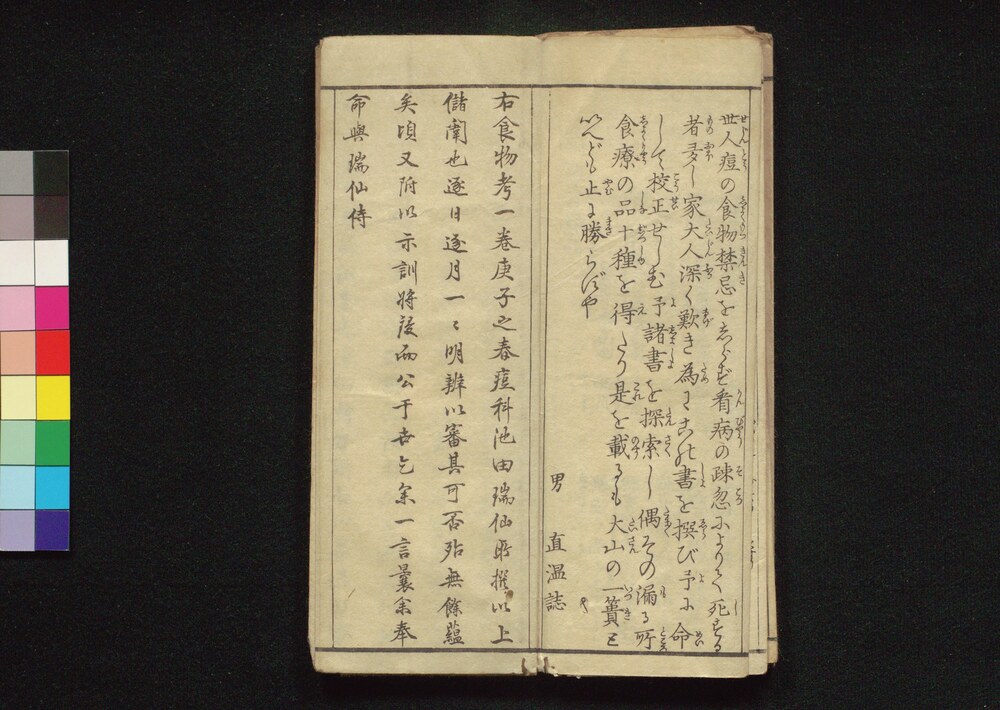 世人痘の食物禁忌をしらず看病の疎忽によりて死する
者多し家大人深く歎き為にこの書を撰び予に命
して校正せしむ予諸書を探索し偶その漏る所
食療の品十種を得たり是を載るも大山の一簣と
いへども止に勝らずや
男 直温誌
右食物考一卷庚子之春痘科池田瑞仙所撰以上
儲闈也逐日逐月一〻明辨以審其可否殆無餘蘊
矣頃又附以示訓将授而公于世乞余一言曩余奉
命與瑞仙侍